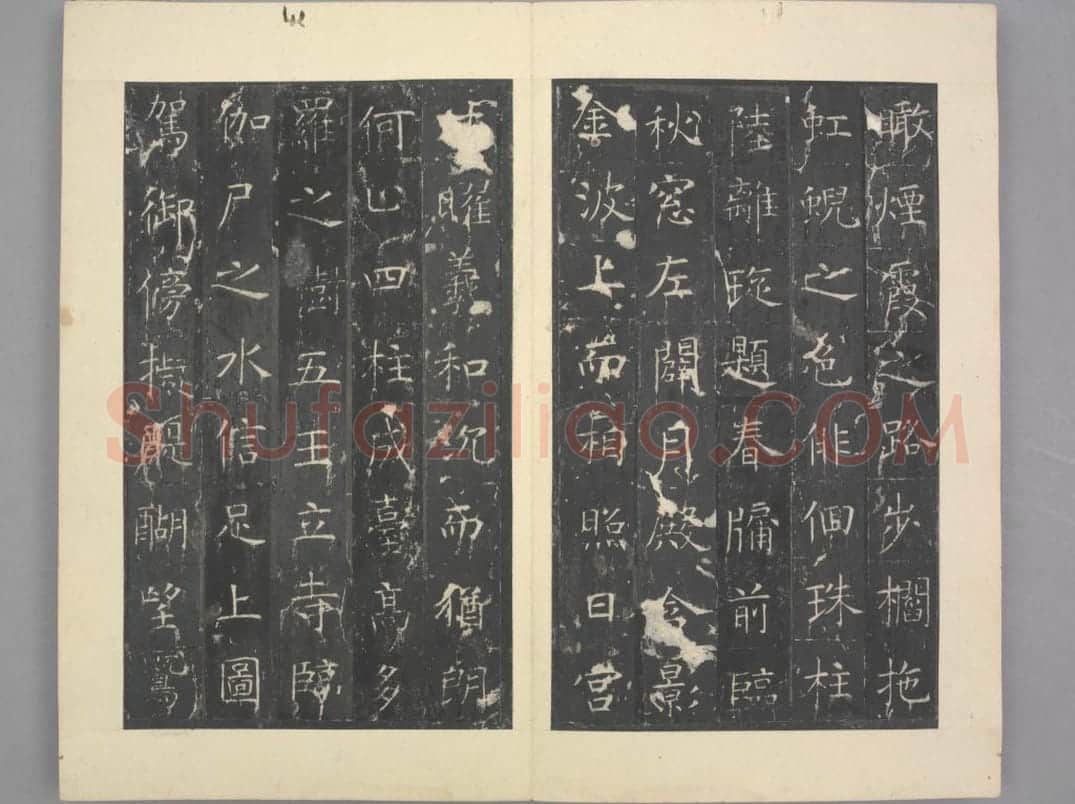 瞰煙霞之路步櫩拖
虹蜺之色俳佪珠柱
陸離題春牖前臨
秋窓左闢月殿含影
金波上而相照日宮
曜羲和而猶朗
何止四柱成臺高多
羅之樹五王立寺臨
伽尸之水信足上圖
駕御傍醐望鷲
Shufaziliao.COM